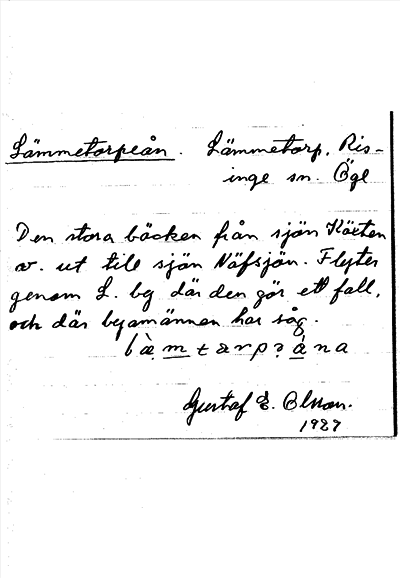 Lämmetorpeån. Lämmetorp, Ris-
inge sn. Ögl
Den stora bäcken från sjön
v. ut till sjön Näfsjön. Flyter
genom L. by där den gör ett fall,
och där byamännen har såg.
Gustaf E. Olsson.
1927